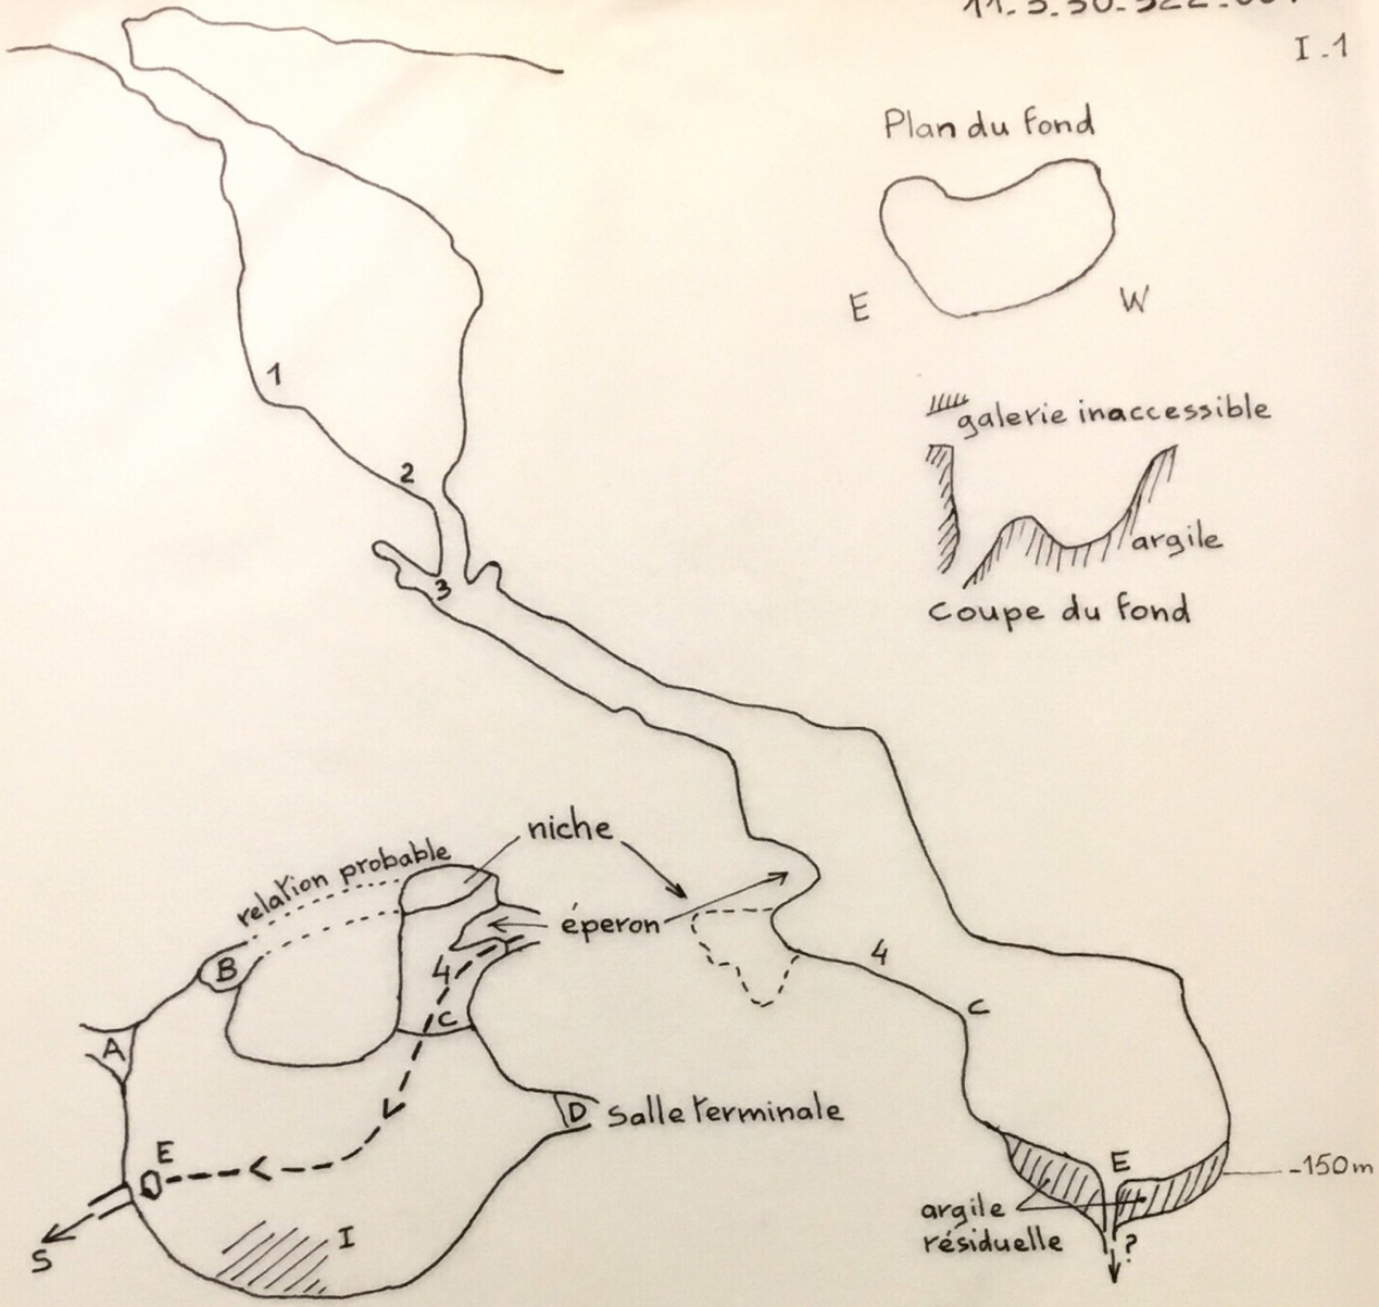 I.1
Plan du fond
E
W
1
galerie inaccessible
2
argile
3
coupe du fond
niche
relation probable
éperon
B
4
4
C
C
A
D
Salle terminale
E
E
-150m
argile
résiduelle
I
?
S